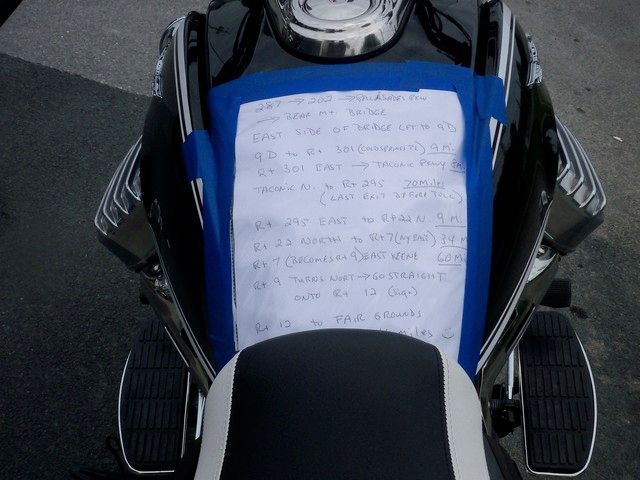 287 → 202 → PALASADES PKW
→ BEAR Mt. BRIDGE
EAST SIDE OF BRIDGE LFT TO 9D
9D to Rt 301 (COLDSPRING) 9 M.
Rt 301 EAST → TACONIC PKWY
TACONIC N. to Rt 295 70 Miles
(LAST EXIT BEFORE TOLL)
Rt 295 EAST to Rt 22 N 9 M.
Rt 22 NORTH to Rt 7 (NY EAST) 34 M
Rt 7 (BECOMES Rt 9) EAST KEENE 60 M
Rt 9 TURNS NORT → GO STRAIGHT
ONTO Rt 12 (Sign)
Rt 12 to FAIR GROUNDS
miles